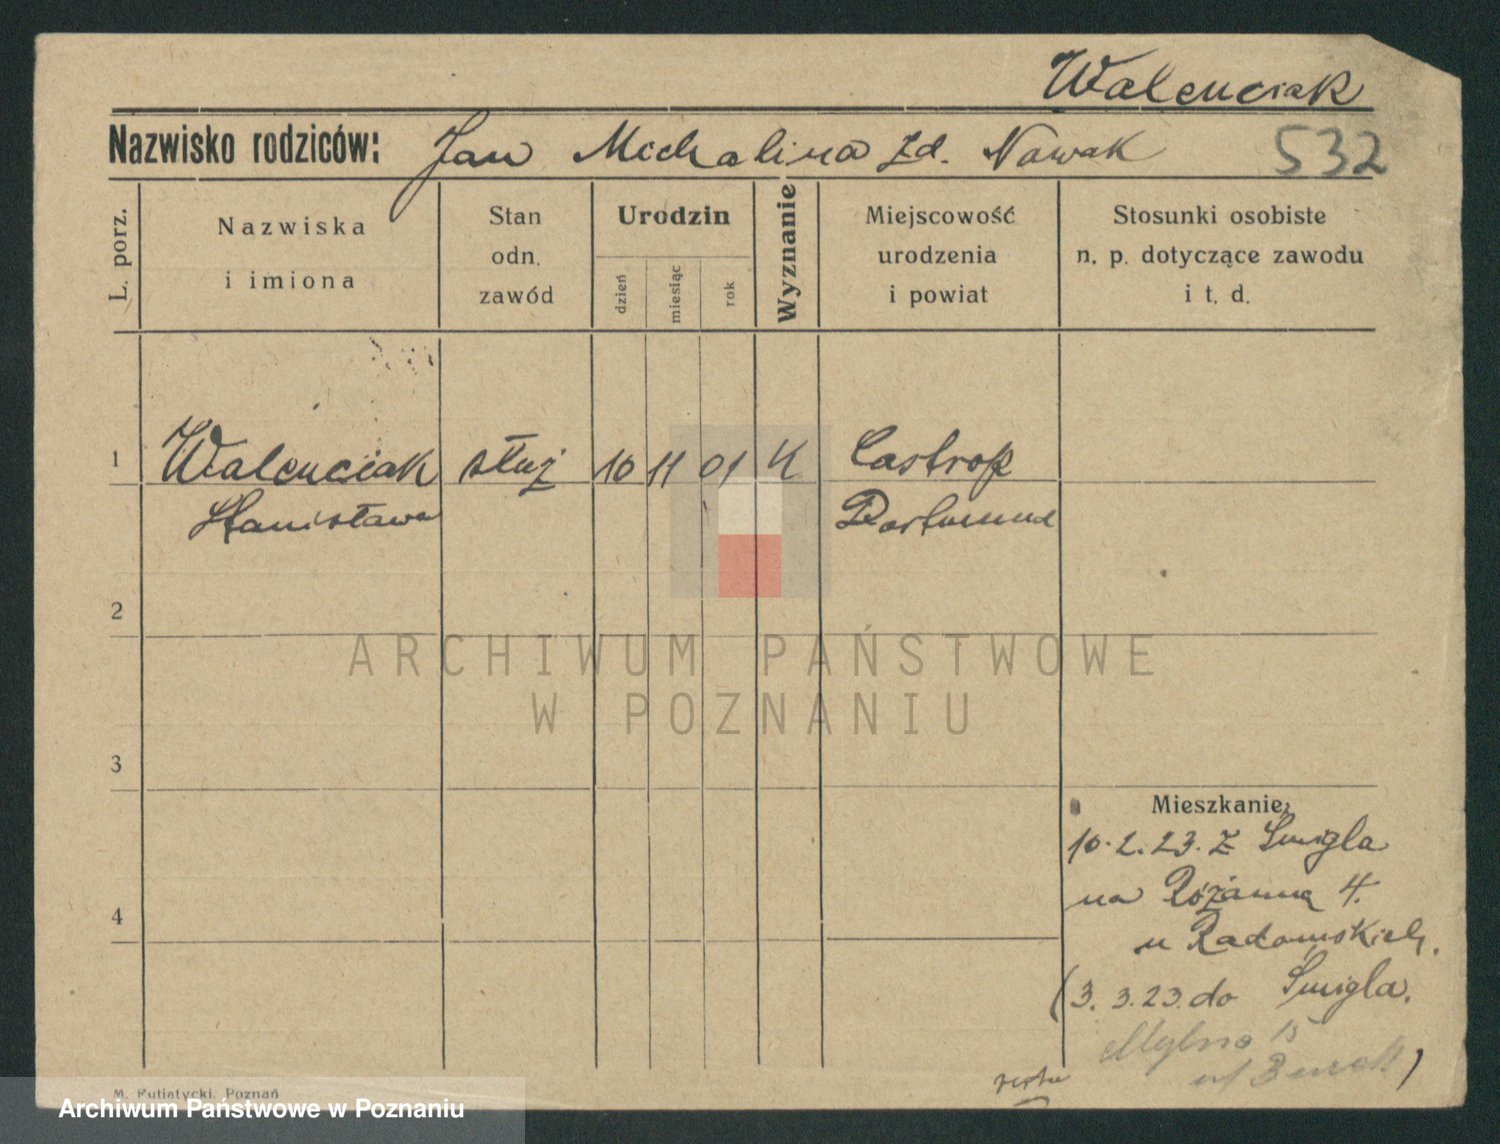 Walenciak
Nazwisko rodziców: Jan Michalina zd. Nowak 532
L. porz.
Nazwiska
i imiona
Stan
odn.
zawód
Urodzin
dzień
miesiąc
rok
Wyznanie
Miejscowość
urodzenia
i powiat
Stosunki osobiste
n. p. dotyczące zawodu
i t. d.
1 Walenciak służ 10 11 01 K Castrop
Stanisława Dortmund
2
ARCHIWUM PAŃSTWOWE
W POZNANIU
3
Mieszkanie:
10.2.23. z Śmigla
na Różanną 4.
4
u Radomskich.
(3. 3.23. do Śmigla.
Mylna 15
M. Putiatycki, Poznań
Archiwum Państwowe w Poznaniu